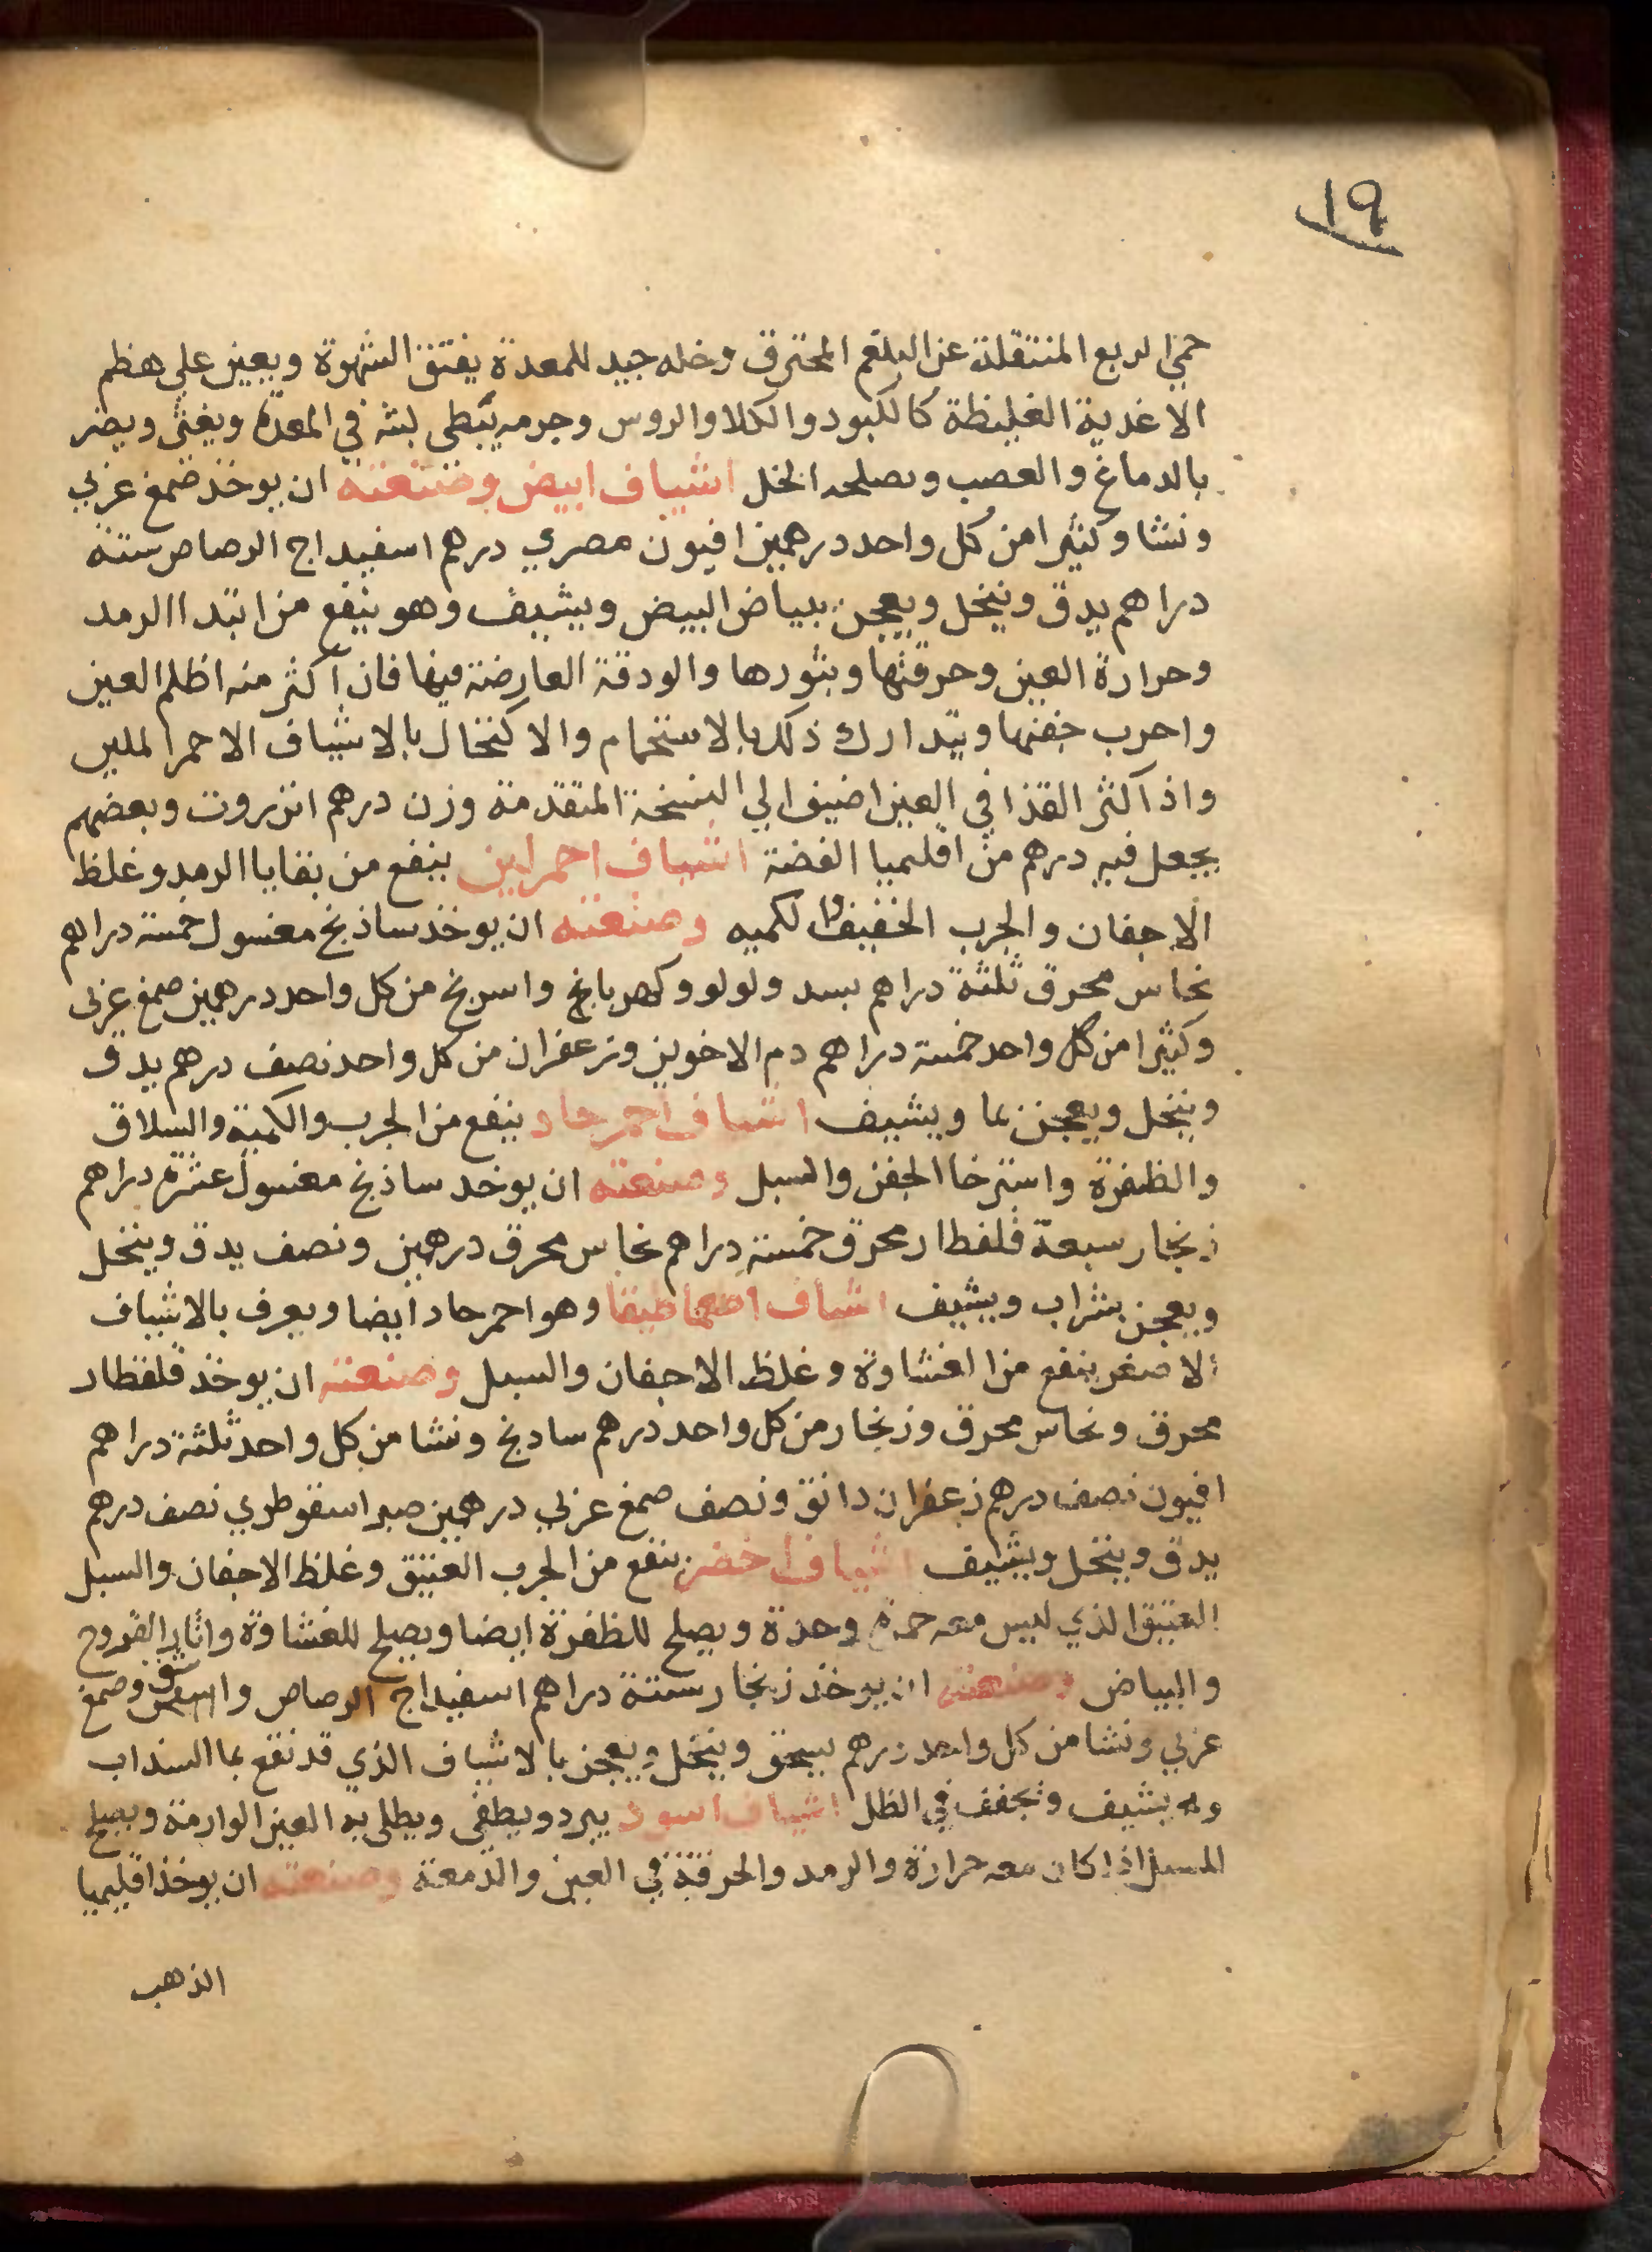 ١٩
حمى الربع المنتقلة عن البلغم المحترق وخله جيد للمعدة يفتق الشهوة ويعين علي هظم
الاغدية الغليظة كالكبود والكلا والروس وجرمه يبطى لبثه في المعدة ويغثى ويضر
بالدماغ والعصب ويصلحه الخل اشياف ابيض وصنعته ان يوخذ صمغ عربي
ونشا وكثيرا من كل واحد درهمين افيون مصري درهم اسفيداج الرصاص ستة
دراهم يدق وينخل ويعجن ببياض البيض ويشيف وهو ينفع من ابتدا الرمد
وحرارة العين وحرقتها وبثورها والودقة العارضة فيها فان اكثر منه اظلم العين
واجرب جفنها ويتدارك ذلك بالاستحمام والاكتحال بالاشياف الاحمر الملين
واذا كثر القذا في العين اضيف الي النسخة المتقدمة وزن درهم انزروت وبعضهم
يجعل فيه درهم من اقليميا الفضة اشياف احمر لين ينفع من بقايا الرمد وغلظ
الاجفان والجرب الخفيف والكميه وصنعته ان يوخذ ساذنج مغسول خمسة دراهم
نحاس محرق ثلثة دراهم بسد ولولو وكهربانج واسرنج من كل واحد درهمين صمغ عربي
وكثيرا من كل واحد خمسة دراهم دم الاخوين وزعفران من كل واحد نصف درهم يدق
وينخل ويعجن بما ويشيف اشياف احمر حاد ينفع من الجرب والكمية والسلاق
والظفرة واسترخا الجفن والسبل وصنعته ان يوخد ساذنج مغسول عشرة دراهم
زنجار سبعة قلقطار محرق خمسة دراهم نحاس محرق درهمين ونصف يدق وينخل
ويعجن بشراب ويشيف اشياف اصطماطيقا وهو احمر حاد ايضا ويعرف بالاشياف
الاصغر ينفع من الغشاوة وغلظ الاجفان والسبل وصنعته ان يوخذ قلقطار
محرق ونحاس محرق وزنجار من كل واحد درهم سادنج ونشا من كل واحد ثلثة دراهم
افيون نصف درهم زعفران دانق ونصف صمغ عربي درهمين صبر اسقوطري نصف درهم
يدق وينخل ويشيف اشياف اخضر ينفع من الجرب العتيق وغلظ الاجفان والسبل
العتيق الذي ليس معه حمرة وحدة ويصلح للظفرة ايضا ويصلح للغشاوة واثار القروح
والبياض وصنعته ان يوخذ زنجار ستة دراهم اسفيداج الرصاص واشق وصمغ
عربي ونشا من كل واحد درهم يسحق وينخل ويعجن بالاشياف الذي قد نقع بما السنداب
وبه يشيف وتجفف في الظل اشياف اسود يبرد ويطفى ويطلى به العين الوارمة ويصلح
للسبل اذا كان معه حرارة والرمد والحرقة في العين والدمعة وصنعته ان يوخذ اقليميا
الذهب